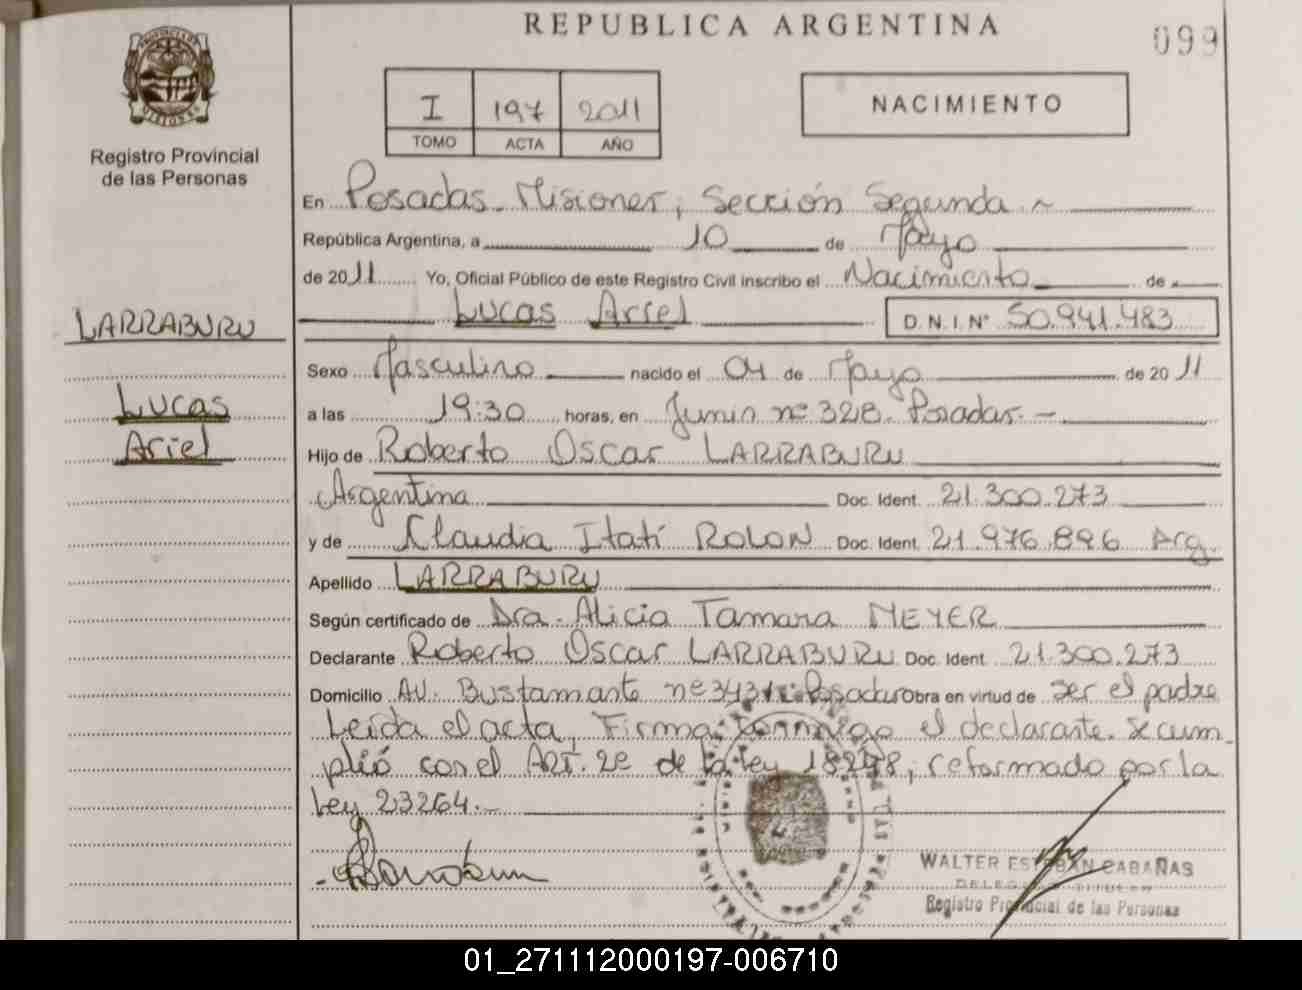 REPUBLICA ARGENTINA
099
PROVINCIA DE MISIONES
Registro Provincial
de las Personas
I 197 2011
TOMO ACTA AÑO
NACIMIENTO
En Posadas. Misiones, Sección Segunda ~
República Argentina, a 10 de Mayo
de 2011 Yo, Oficial Público de este Registro Civil inscribo el Nacimiento de
Lucas Ariel D.N.I. Nº 50.941.483
LARRABURU
Lucas
Ariel
Sexo Masculino nacido el 04 de Mayo de 2011
a las 19:30 horas, en Junin nº 328. Posadas. -
Hijo de Roberto Oscar LARRABURU
Argentina Doc. Ident. 21.300.273
y de Claudia Itatí ROLON Doc. Ident. 21.976.896 Arg.
Apellido LARRABURU
Según certificado de Dra. Alicia Tamara MEYER
Declarante Roberto Oscar LARRABURU Doc. Ident. 21.300.273
Domicilio AV. Bustamante nº 3431 Posadas Obra en virtud de ser el padre
Leída el acta, Firma conmigo el declarante. Se cum_
plió con el ART. 2º de la Ley 18248, reformado por la
Ley 23264.-
WALTER ESTEBAN CABAÑAS
DELEGADO TITULAR
Registro Provincial de las Personas
01_271112000197-006710